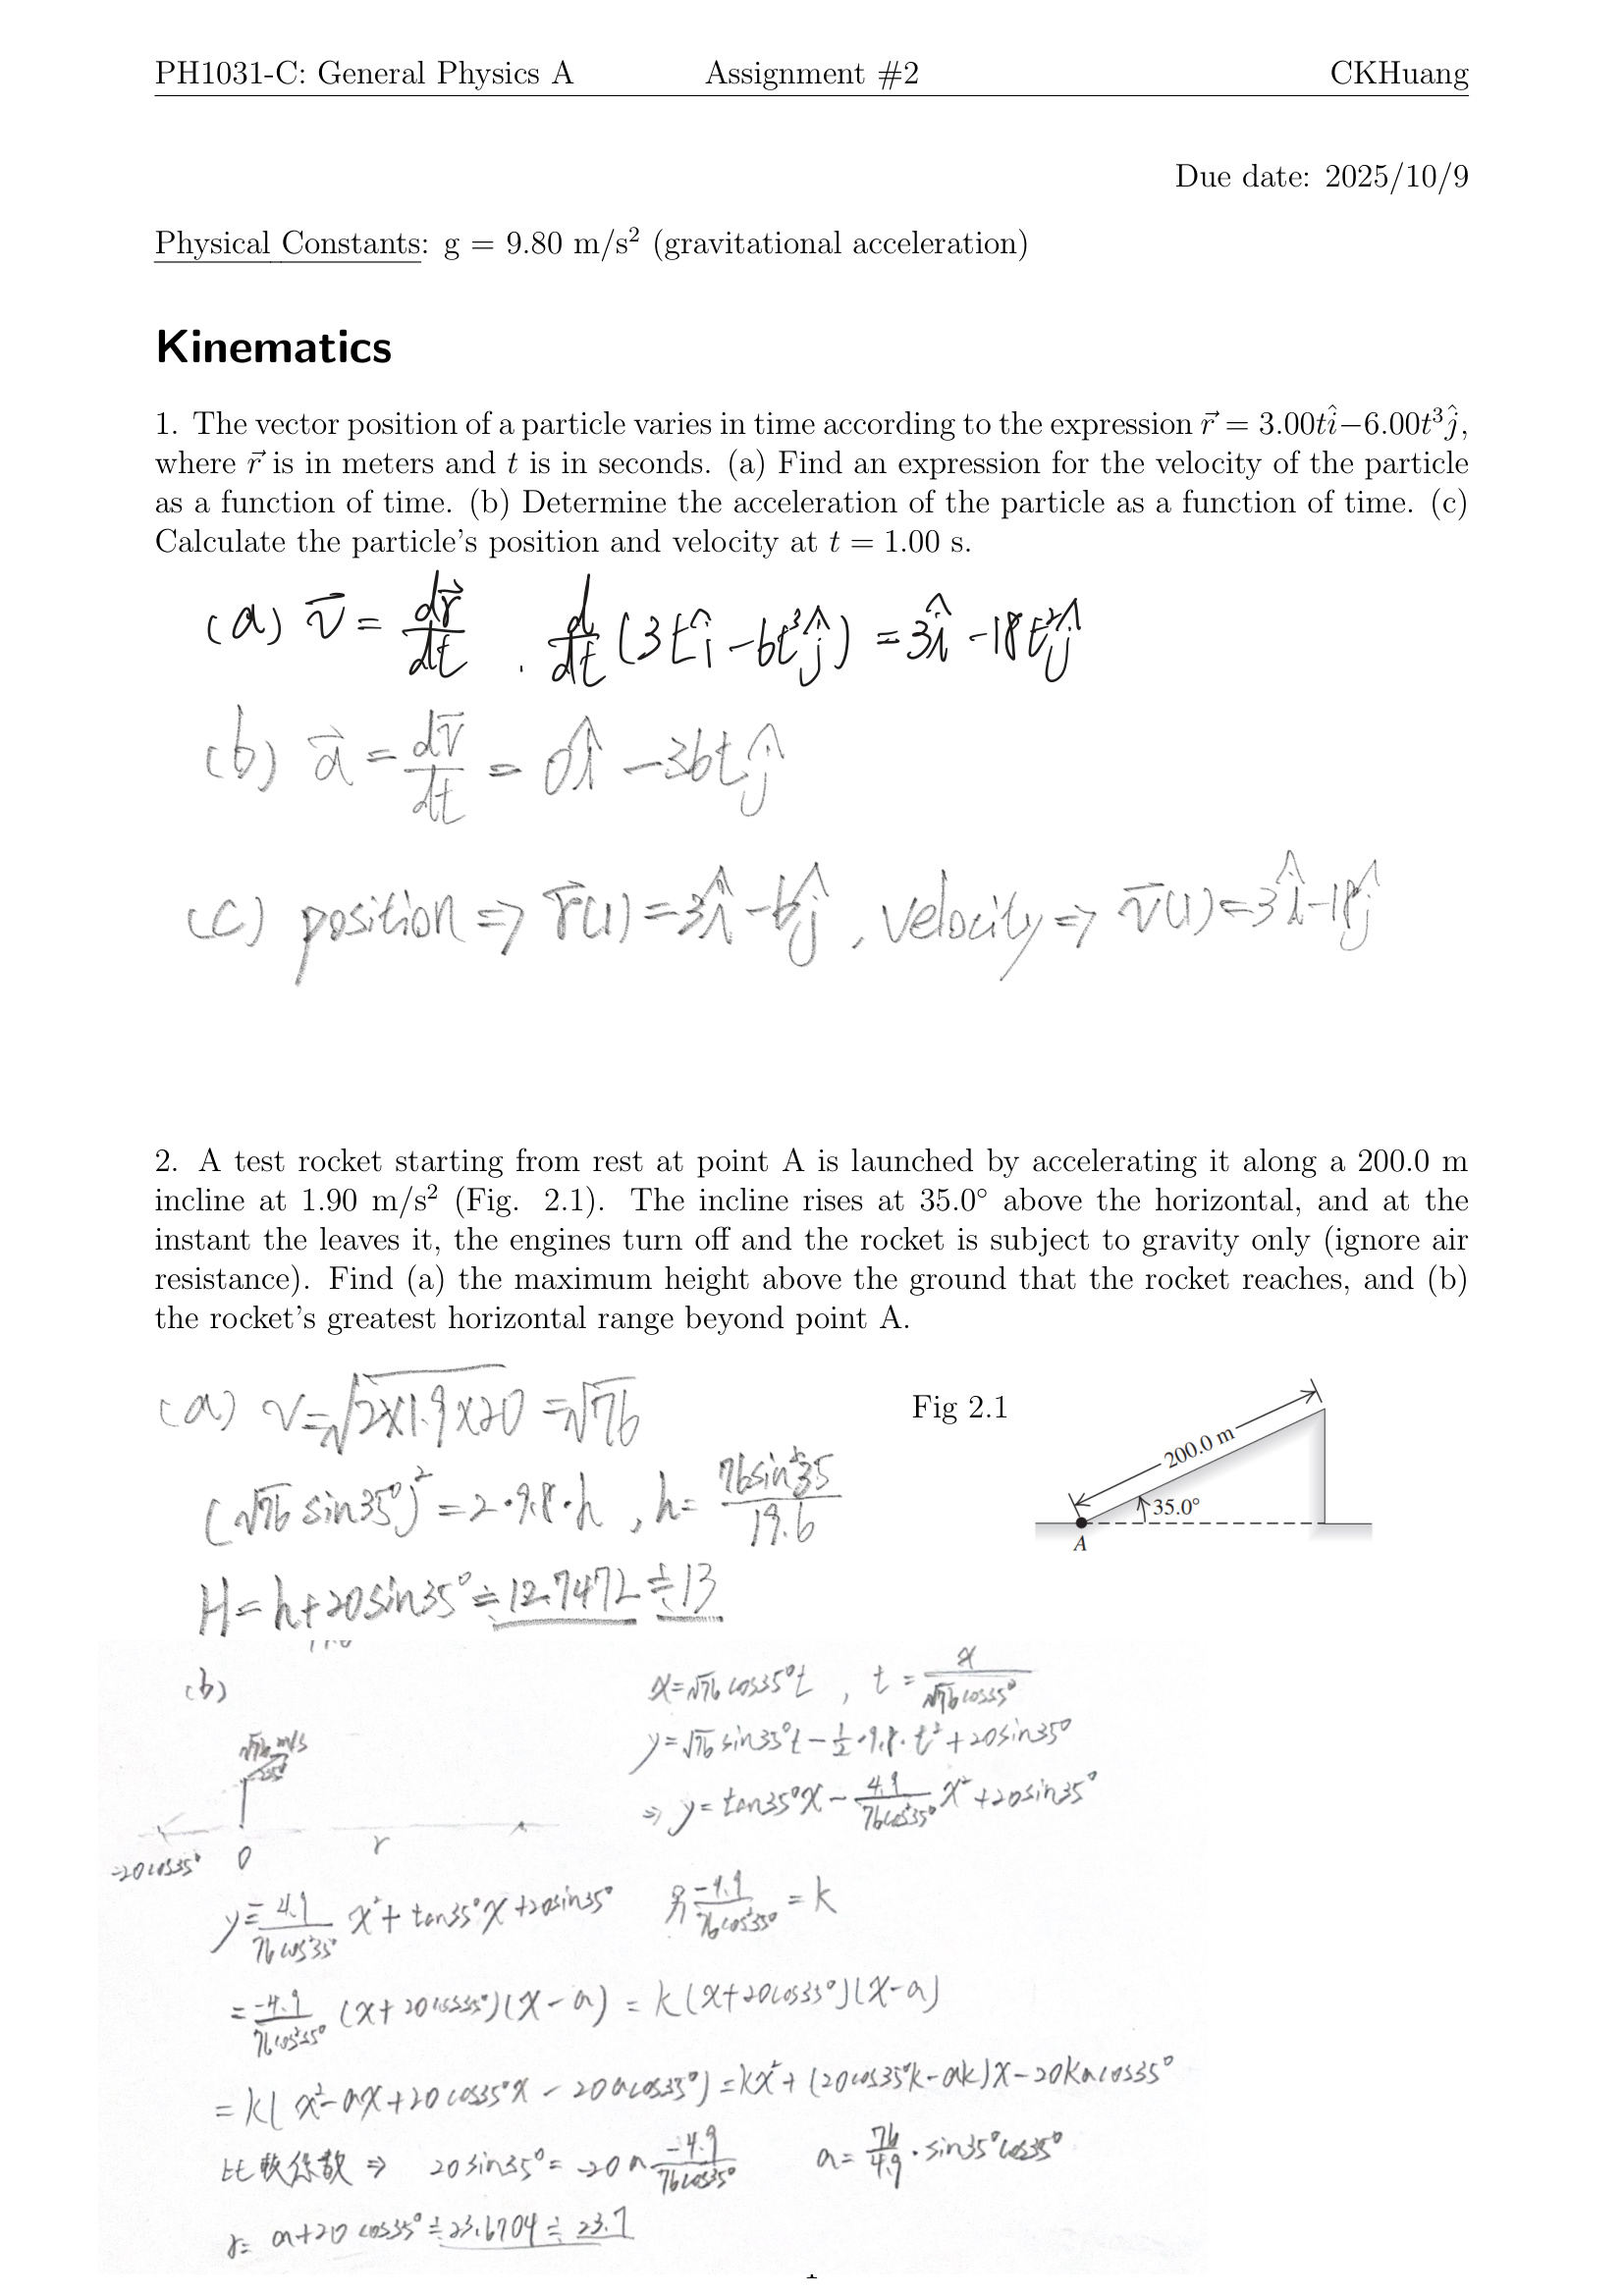 PH1031-C: General Physics A Assignment #2 CKHuang
Due date: 2025/10/9
Physical Constants: g = 9.80 m/s² (gravitational acceleration)
Kinematics
1. The vector position of a particle varies in time according to the expression r⃗ = 3.00tî−6.00t³ĵ,
where r⃗ is in meters and t is in seconds. (a) Find an expression for the velocity of the particle
as a function of time. (b) Determine the acceleration of the particle as a function of time. (c)
Calculate the particle's position and velocity at t = 1.00 s.
(a) v⃗ = dr⃗/dt . d/dt (3tî − 6t³ĵ) = 3î − 18t²ĵ
(b) a⃗ = dv⃗/dt = 0î − 36tĵ
(c) position ⇒ r⃗(1) = 3î − 6ĵ , velocity ⇒ v⃗(1) = 3î − 18ĵ
2. A test rocket starting from rest at point A is launched by accelerating it along a 200.0 m
incline at 1.90 m/s² (Fig. 2.1). The incline rises at 35.0° above the horizontal, and at the
instant the leaves it, the engines turn off and the rocket is subject to gravity only (ignore air
resistance). Find (a) the maximum height above the ground that the rocket reaches, and (b)
the rocket's greatest horizontal range beyond point A.
(a) v = √(2×1.9×20) = √76
Fig 2.1
200.0 m
35.0°
A
(√76 sin35°)² = 2·9.8·h , h = 76sin²35/19.6
H = h+20sin35° ≐ 12.7472 ≐ 13
(b)
x = √76 cos35°t , t = x/(√76 cos35°)
y = √76 sin35°t − ½·9.8·t² + 20sin35°
⇒ y = tan35°x − 4.9/(76cos²35°) x² + 20sin35°
√76 m/s
35°
-20cos35° 0 r
y = −4.9/(76cos²35°) x² + tan35°x + 20sin35° 另 −4.9/(76cos²35°) = k
= −4.9/(76cos²35°) (x+20cos35°)(x−a) = k(x+20cos35°)(x−a)
= k(x²−ax+20cos35°x − 20acos35°) = kx² + (20cos35°k−ak)x − 20kacos35°
比較係數 ⇒ 20sin35° = −20a −4.9/(76cos35°) a = 76/4.9 · sin35°cos35°
r = a+20cos35° ≐ 23.6704 ≐ 23.7